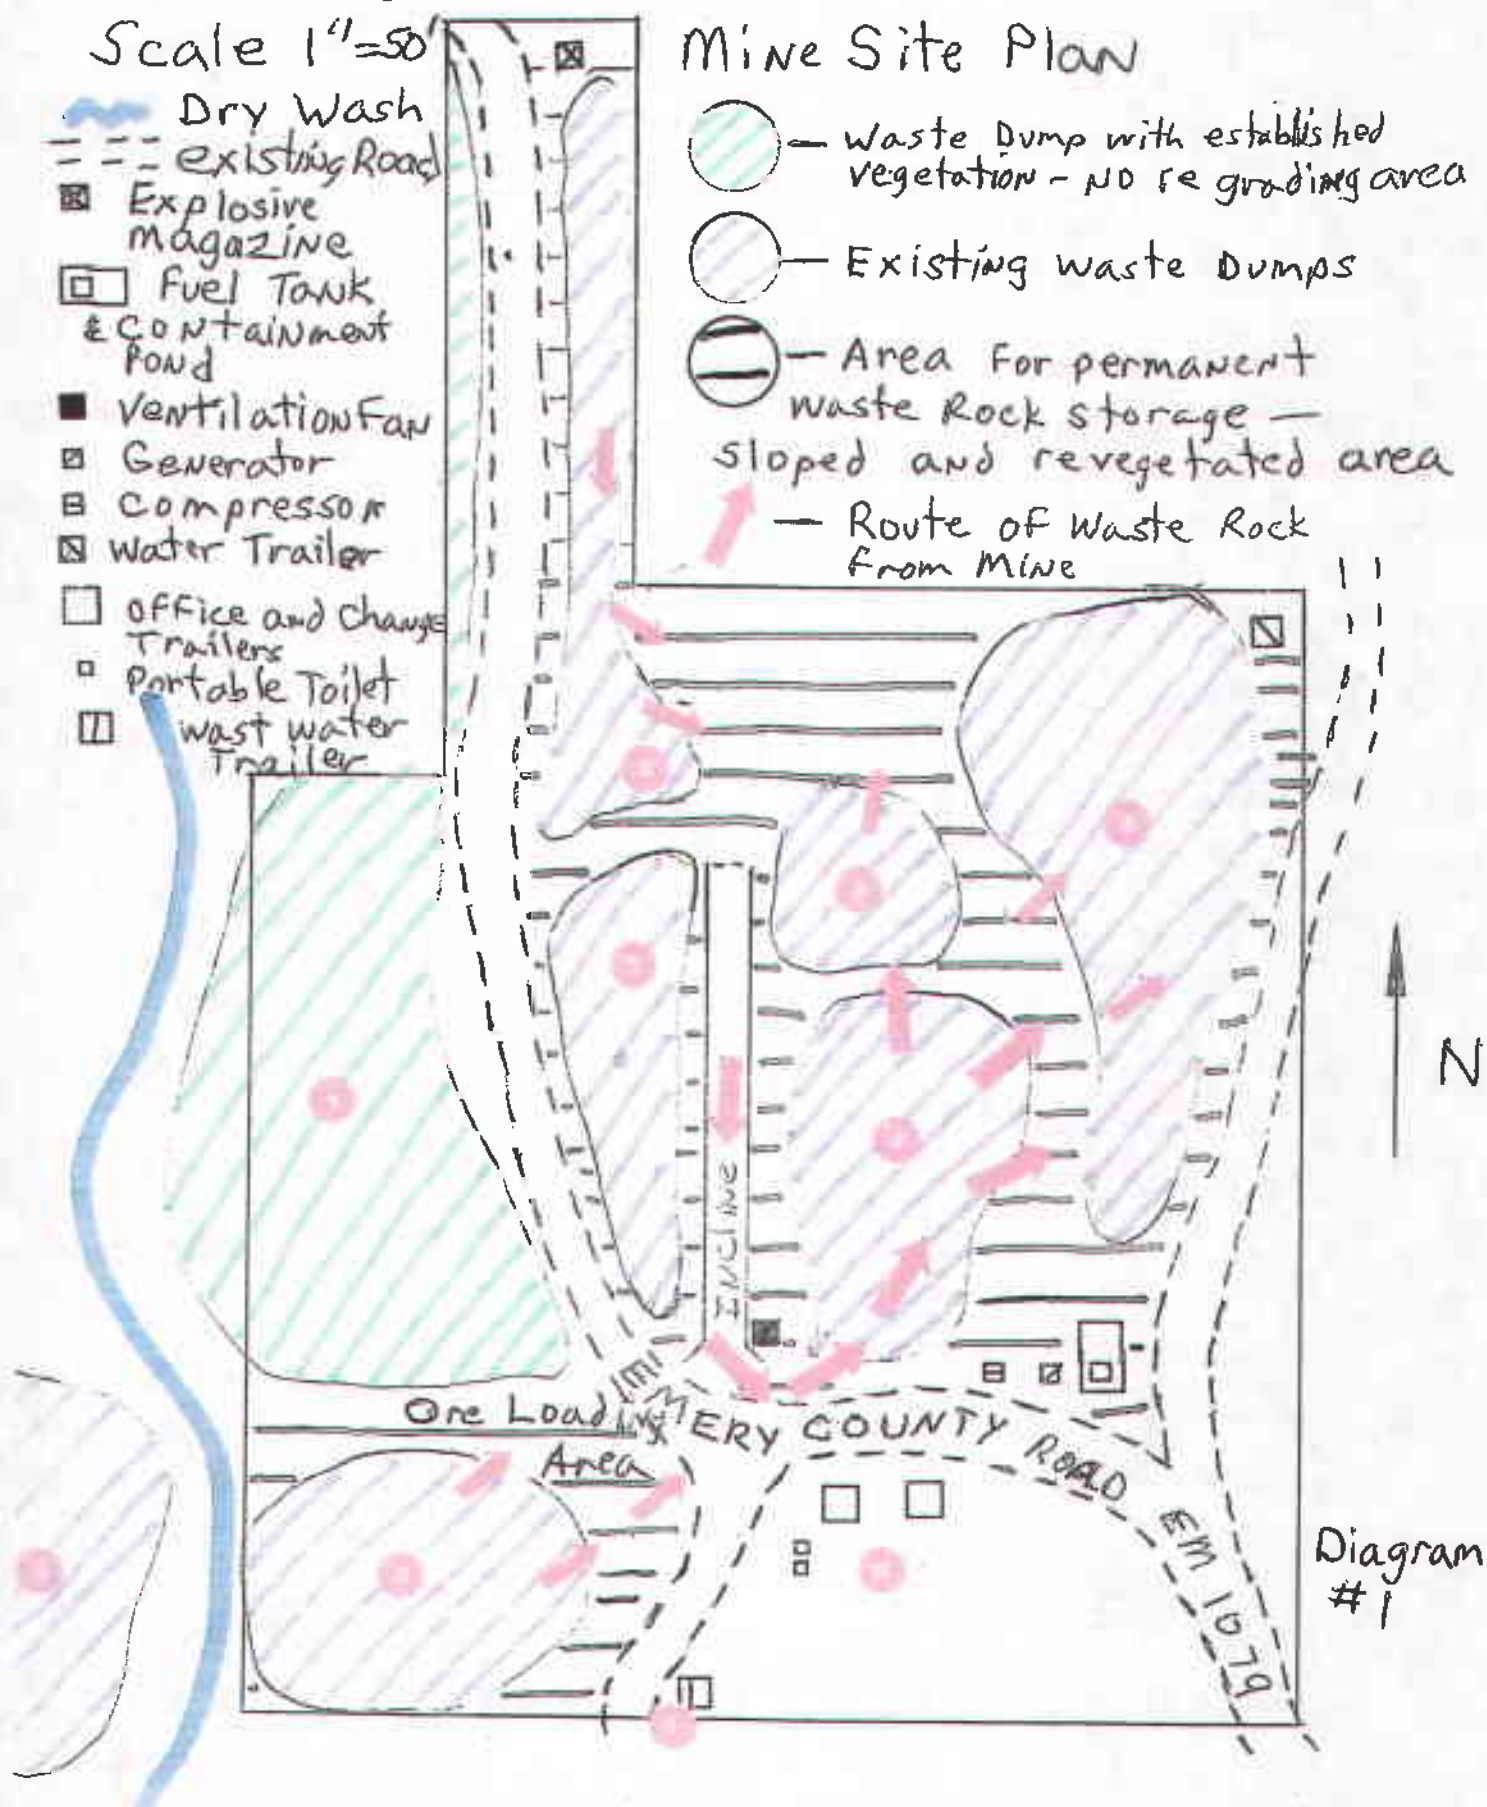 Scale 1"=50'
Dry Wash
existing Road
Explosive
magazine
Fuel Tank
& Containment
Pond
Ventilation Fan
Generator
Compressor
Water Trailer
Office and Change
Trailers
Portable Toilet
wast water
Trailer
Mine Site Plan
Waste Dump with established
vegetation - NO re grading area
Existing Waste Dumps
Area For permanent
waste Rock storage —
sloped and revegetated area
Route of Waste Rock
from Mine
N
INCLINE
Ore Loading
Area
EMERY COUNTY ROAD EM 1079
Diagram
#1